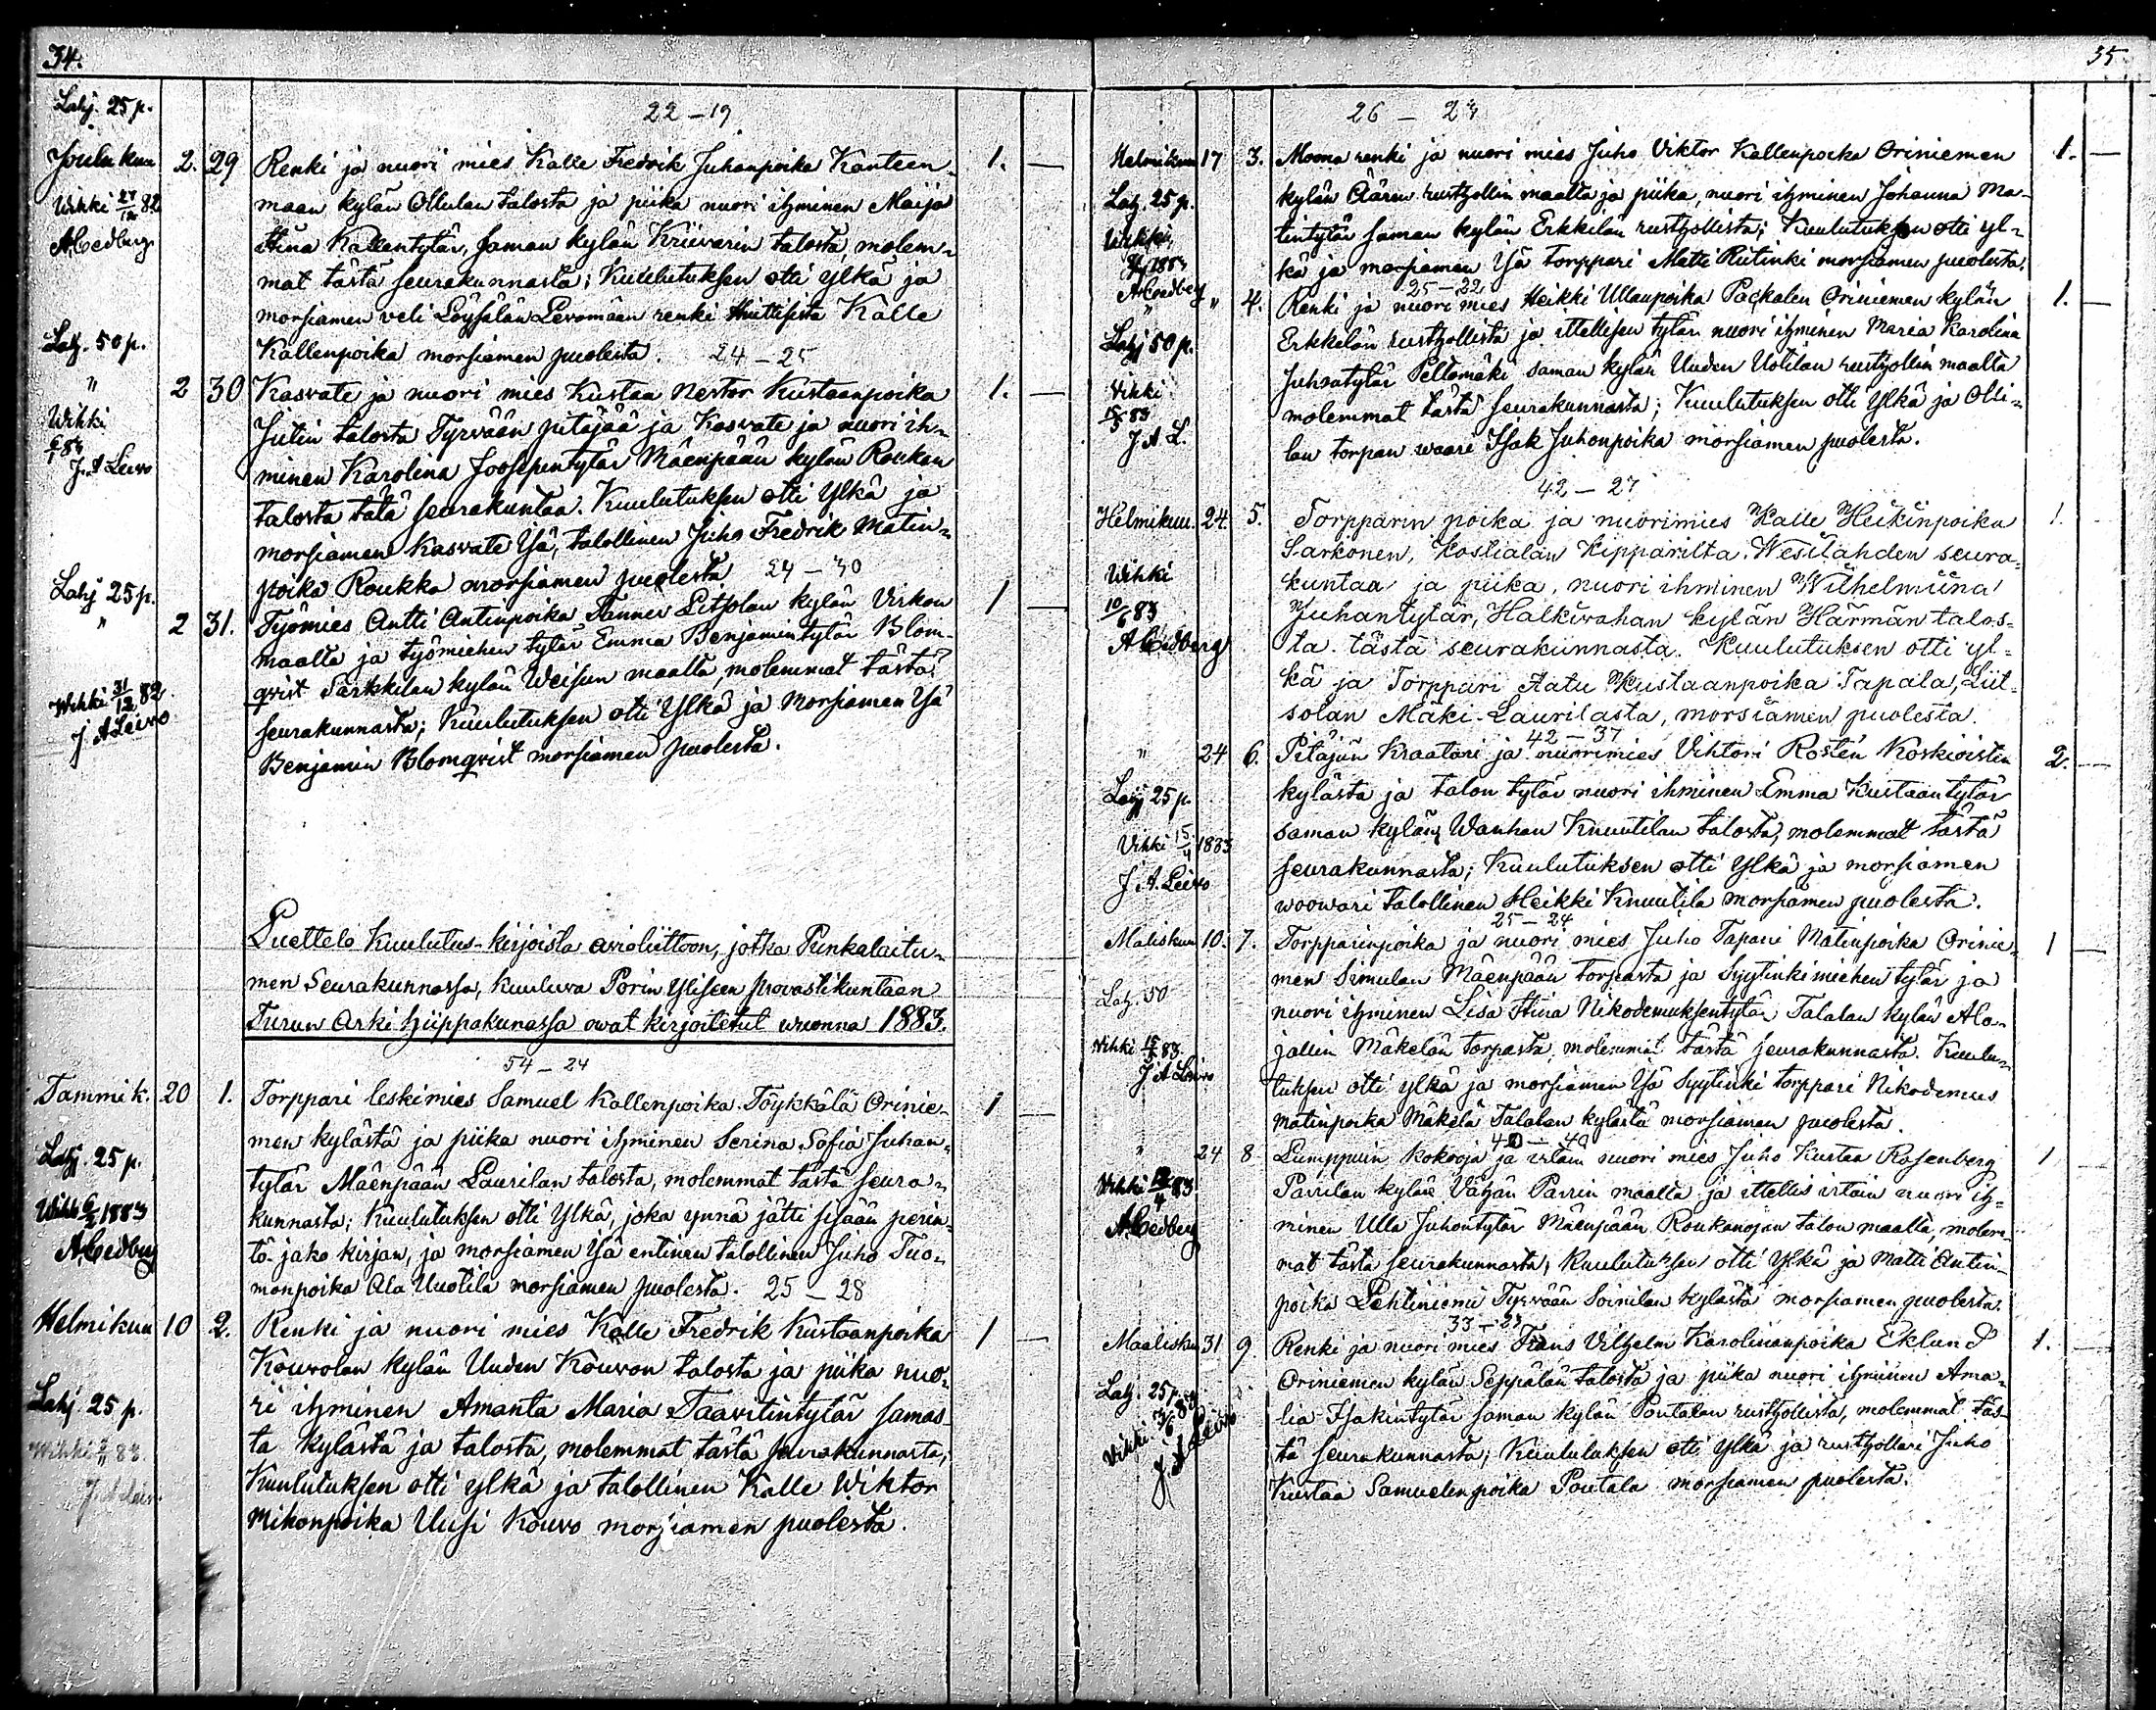 34.
Lahj. 25 p.
22 – 19
Joulu kuu 2. 29 Renki ja nuori mies Kalle Fredrik Juhanpoika Kanteen- 1. —
Wihki 27/12 82 maan kylän Ollulan talosta ja piika nuori ihminen Maija
A Cedberg Stina Kallentytär, saman kylän Kriivarin talosta, molem-
mat tästä seurakunnasta; Kuulutuksen otti ylkä ja
morsiamen veli Löysälän Levomäen renki Huittisista Kalle
Lahj. 50 p. Kallenpoika morsiamen puolesta. 24 – 25
" 2 30 Kasvate ja nuori mies Kustaa Nestor Kustaanpoika 1. —
Wihki Jutin talosta Tyrvään pitäjää ja Kasvate ja nuori ih-
6/1 83 minen Karolina Joosepintytär Mäenpään kylän Roukan
J. A Leivo talosta tätä seurakuntaa. Kuulutuksen otti ylkä ja
morsiamen Kasvate Isä, talollinen Juho Fredrik Matin-
poika Roukka morsiamen puolesta. 24 – 30
Lahj 25 p.
" 2 31. Työmies Antti Antinpoika Tanner Liitsolan kylän Virkon 1 —
maalta ja työmiehen tytär Emma Benjamintytär Blom-
qvist Sarkkilan kylän Weisun maalta, molemmat tästä
Wihki 31/12 82. seurakunnasta; Kuulutuksen otti Ylkä ja Morsiamen Isä
J A Leivo Benjamin Blomqvist morsiamen puolesta.
Luettelo Kuulutus-kirjoista avioliittoon, jotka Punkalaitu-
men Seurakunnassa, kuuluva Porin Yliseen provastikuntaan
Turun Arki hiippakunassa owat kirjoitetut wuonna 1883.
54 – 24
Tammik. 20 1. Torppari leskimies Samuel Kallenpoika Töykkälä Orinie- 1 —
men kylästä ja piika nuori ihminen Serina Sofia Juhan-
Lahj. 25 p. tytär Mäenpään Laurilan talosta, molemmat tästä seura-
Wihki 6/3 1883 kunnasta; Kuulutuksen otti Ylkä, joka ynnä jätti sisään perin-
A. Cedberg tö-jako kirjan, ja morsiamen Isä entinen talollinen Juho Tuo-
monpoika Ala Uuotila morsiamen puolesta. 25 – 28
Helmikuu 10 2. Renki ja nuori mies Kalle Fredrik Kustaanpoika 1 —
Kouvolan kylän Uuden Kouvon talosta ja piika nuo-
Lahj 25 p. ri ihminen Amanta Maria Taavitintytär samas-
Wihki 83. ta kylästä ja talosta, molemmat tästä seurakunnasta;
Kuulutuksen otti ylkä ja talollinen Kalle Wiktor
Mikonpoika Uusi Kouvo morsiamen puolesta.
35
26 – 23
Helmikuu 17 3. Moona renki ja nuori mies Juho Viktor Kallenpoika Oriniemen 1. —
Lahj. 25 p. kylän Äären rustzollin maalta ja piika, nuori ihminen Johanna Ma-
Wihki tintytär saman kylän Erkkilän rustzollista; Kuulutuksen otti yl-
1883 kä ja morsiamen Isä torppari Matti Riitinki morsiamen puolesta.
A Cedberg 25 – 22
" 4. Renki ja nuori mies Heikki Ullanpoika Packalen Oriniemen kylän 1. —
Lahj 50 p. Erkkilän rustzollista ja ittellisen tytär nuori ihminen Maria Karolina
Vihki Juhontytär Peltomäki saman kylän Uuden Uotilan rustzollin maalta
15/5 83 molemmat tästä seurakunnasta; Kuulutuksen otti Ylkä ja Olli-
J A L. lan torpan waari Isak Juhonpoika morsiamen puolesta.
42 – 27
Helmikuu. 24. 5. Torpparin poika ja nuorimies Kalle Heikinpoika 1.
Sarkonen, Kostialan Kipparilta, Wesilahden seura-
Wihki kuntaa ja piika, nuori ihminen Wilhelmiina
10/6 83 Juhantytär, Halkivahan kylän Härmän talos-
A Cedberg ta tästä seurakunnasta. Kuulutuksen otti yl-
kä ja Torppari Aatu Kustaanpoika Tapala, Liit-
solan Mäki-Laurilasta, morsiamen puolesta.
42 – 37
" 24 6. Pitäjän Kraatari ja nuorimies Vihtori Rostén Koskioisten 2. —
Lahj 25 p. kylästä ja talon tytär nuori ihminen Emma Kustaantytär
saman kylän, Wanhan Knuutilan talosta, molemmat tästä
Vihki 15/4 1883 seurakunnasta; Kuulutuksen otti Ylkä ja morsiamen
J A. Leivo woowari talollinen Heikki Knuutila morsiamen puolesta.
25 – 24
Maliskuu 10. 7. Torpparinpoika ja nuori mies Juho Tapani Matinpoika Orinie- 1 —
men Simulan Mäenpään torpasta ja Syytinkimiehen tytär ja
Lahj. 50 nuori ihminen Lisa Stina Nikodemuksentytär, Talalan kylän Alo-
Vihki 15/5 83. jallin Mäkelän torpasta, molemmat tästä seurakunnasta. Kuulu-
J A Leivo tuksen otti ylkä ja morsiamen Isä Syytinki torppari Nikodemus
Matinpoika Mäkelä Talalan kylästä morsiamen puolesta.
40 – 40
" 24 8 Lumppuin kokooja ja irtain nuori mies Juho Kustaa Rosenberg 1 —
Vihki 83 Parrilan kylän Vähän Parrin maalta ja ittellis irtain nuori ih-
A. Cedberg minen Ulla Juhontytär Mäenpään Roukanojan talon maalta, molem-
mat tästä seurakunnasta; Kuulutuksen otti Ylkä ja Matti Antin-
poika Lehtiniemi Tyrvään Soinilan kylästä morsiamen puolesta.
Maalisku 31 9 Renki ja nuori mies Frans Vilhelm Karolinanpoika Eklund 1. —
Lahj. 25 p. Oriniemen kylän Seppälän talosta ja piika nuori ihminen Ama-
lia Isakintytär saman kylän Poutalan rustzollista, molemmat täs-
Vihki 83 tä seurakunnasta; Kuulutuksen otti ylkä ja rustzollari Juho
J A Leivo Kustaa Samuelenpoika Poutala morsiamen puolesta.